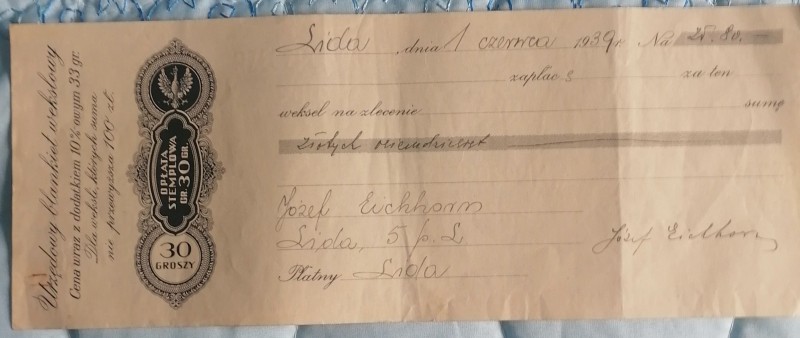 Urzędowy blankiet wekslowy
Cena wraz z dodatkiem 10%-owym 33 gr.
Dla weksli, których suma
nie przewyższa 100 zł.
OPŁATA
STEMPLOWA
GR. 30 GR.
30
GROSZY
Lida, dnia 1 czerwca 1939 r. Na zł. 80.—
zapłacę za ten
weksel na zlecenie sumę
Złotych osiemdziesiąt
Józef Eichhorn
Lida, 5 p. L
Płatny Lida
Józef Eichhorn